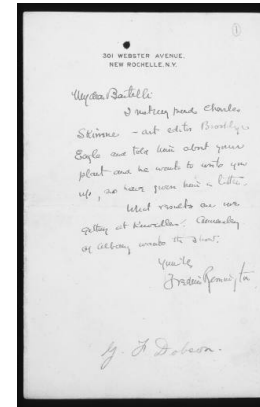 1
301 WEBSTER AVENUE,
NEW ROCHELLE, N.Y.
My dear Bartelli
I met Charles
Skinner - art editor Brooklyn
Eagle and told him about your
plant and he wants to write you
up, so have given him a letter.
What results are we
getting at Knoedlers?
at Albany wants to show.
Yours
Frederic Remington
G. F. Dobson.